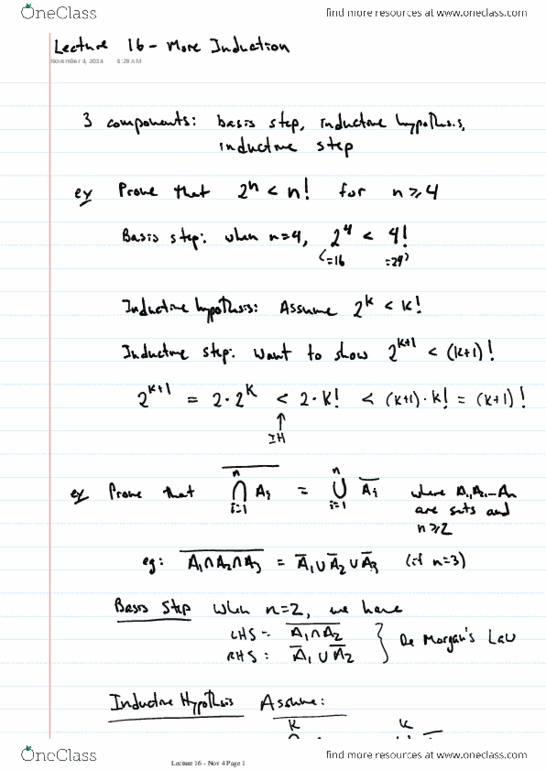 OneClass find more resources at www.oneclass.com
Lecture 16 - More Induction
November 4, 2016 8:29 AM
3 components: basis step, inductive hypothesis,
inductive step
ex Prove that 2^n < n! for n ≥ 4
Basis step: when n=4, 2^4 < 4!
(=16 =24)
Inductive hypothesis: Assume 2^k < k!
Inductive step: Want to show 2^{k+1} < (k+1)!
2^{k+1} = 2·2^k < 2·k! < (k+1)·k! = (k+1)!
↑
IH
ex Prove that \overline{⋂_{i=1}^{n} A_i} = ⋃_{i=1}^{n} \overline{A_i} where A_1, A_2 … A_n
are sets and
n ≥ 2
eg: \overline{A_1∩A_2∩A_3} = \overline{A_1} ∪ \overline{A_2} ∪ \overline{A_3} (if n=3)
Basis Step when n=2, we have
LHS = \overline{A_1∩A_2}
RHS: \overline{A_1} ∪ \overline{A_2} } De Morgan's Law
Inductive Hypothesis Assume:
k k
Lecture 16 - Nov 4 Page 1
OneClass find more resources at www.oneclass.com